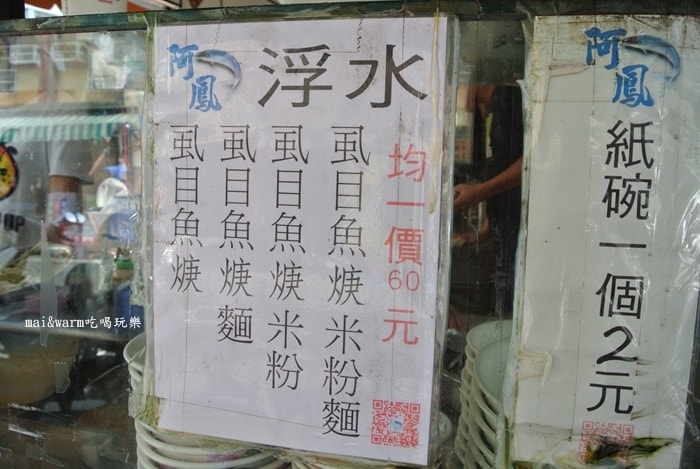 阿鳳
浮水
均一價60元
虱目魚焿米粉麵
虱目魚焿米粉
虱目魚焿麵
虱目魚焿
阿鳳
紙碗一個2元
mai&warm吃喝玩樂